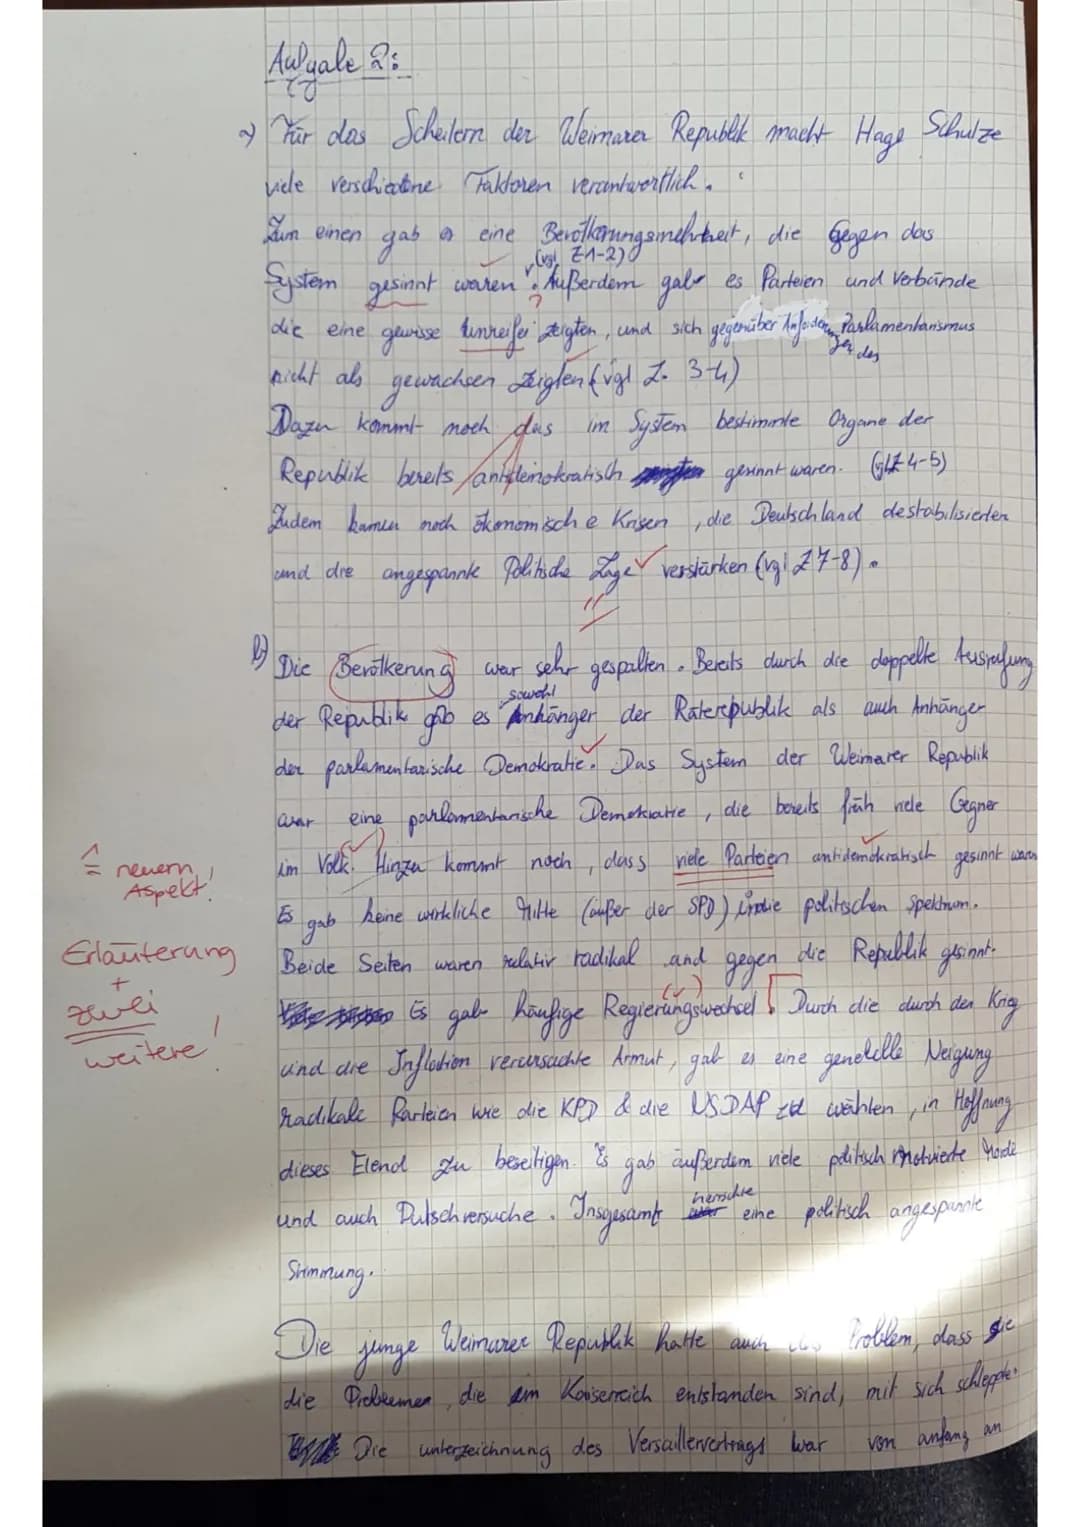 Aufgabe 2:
a) Für das Scheitern der Weimarer Republik macht Hage Schulze
viele verschiedene Faktoren verantwortlich.
Zum einen gab es eine Bevölkerungsmehrheit, die gegen das
(vgl. Z 1-2)
System gesinnt waren. Außerdem gab es Parteien und Verbände
?
die eine gewisse Unreife zeigten, und sich gegenüber Anforderungen des Parlamentarismus
nicht als gewachsen zeigten (vgl Z. 3-4)
Dazu kommt noch das im System bestimmte Organe der
Republik bereits antidemokratisch gesinnt waren. (vgl Z 4-5)
Zudem kamen noch ökonomische Krisen, die Deutschland destabilisierten
und die angespannte Politische Lage verstärken (vgl Z 7-8).
b) Die Bevölkerung war sehr gespalten. Bereits durch die doppelte Ausrufung
sowohl
der Republik gab es Anhänger der Räterepublik als auch Anhänger
der parlamentarische Demokratie. Das System der Weimarer Republik
war eine parlamentarische Demokratie, die bereits früh viele Gegner
im Volk. Hinzu kommt noch, dass viele Parteien antidemokratisch gesinnt waren
≙ neuem Aspekt!
Es gab keine wirkliche Mitte (außer der SPD) politischen Spektrum.
Erläuterung + zwei weitere!
Beide Seiten waren relativ radikal und gegen die Republik gesinnt.
Es gab häufige Regierungswechsel. Durch die durch den Krieg
und die Inflation verursachte Armut, gab es eine generelle Neigung
radikale Parteien wie die KPD & die NSDAP zu wählen, in Hoffnung
dieses Elend zu beseitigen. Es gab außerdem viele politisch motivierte Morde
und auch Putschversuche. Insgesamt herrschte eine politisch angespannte
Stimmung.
Die junge Weimarer Republik hatte auch das Problem, dass sie
die Problemen, die im Kaiserreich entstanden sind, mit sich schleppte.
Die unterzeichnung des Versaillervertrags war von anfang an